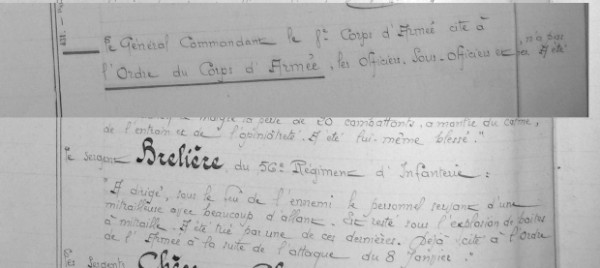 Le Général Commandant le 8e Corps d'Armée cite à
l'Ordre du Corps d'Armée, les Officiers, Sous-Officiers et
n'a pas
A été
malgré la perte de 20 combattants, a montré du calme,
de l'entrain et de l'opiniâtreté. A été lui-même blessé."
Le Sergent Brelière, du 56e Régiment d'Infanterie :
"A dirigé, sous le feu de l'ennemi le personnel servant d'une
mitrailleuse avec beaucoup d'allant. Est resté sous l'explosion de boites
à mitraille. A été tué par une de ces dernières. Déjà cité à l'Ordre
de l'Armée à la suite de l'attaque du 8 Janvier."
Les Sergents